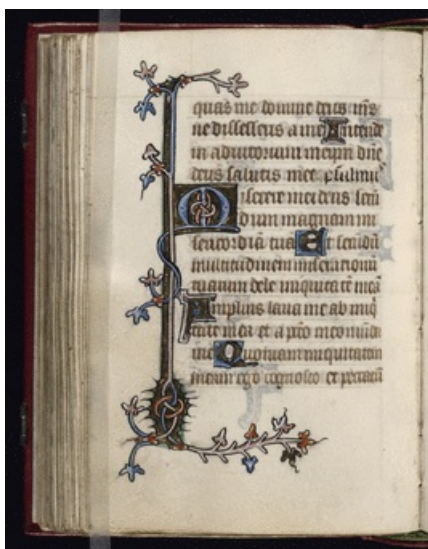 quas me domine deus m̄s
ne discesseris a me Intende
in adiutorium meum dn̄e
deus salutis mee psalmus
Miserere mei deus scdm̄
dum magnam mi
sericordiā tuā Et secūdū
multitudinem miserationū
tuarum dele iniquitatē meā
Amplius laua me ab iniq̄
tate mea et a pcc̄o meo mūda
me Quoniam iniquitatem
meam ego cognosco et peccatū